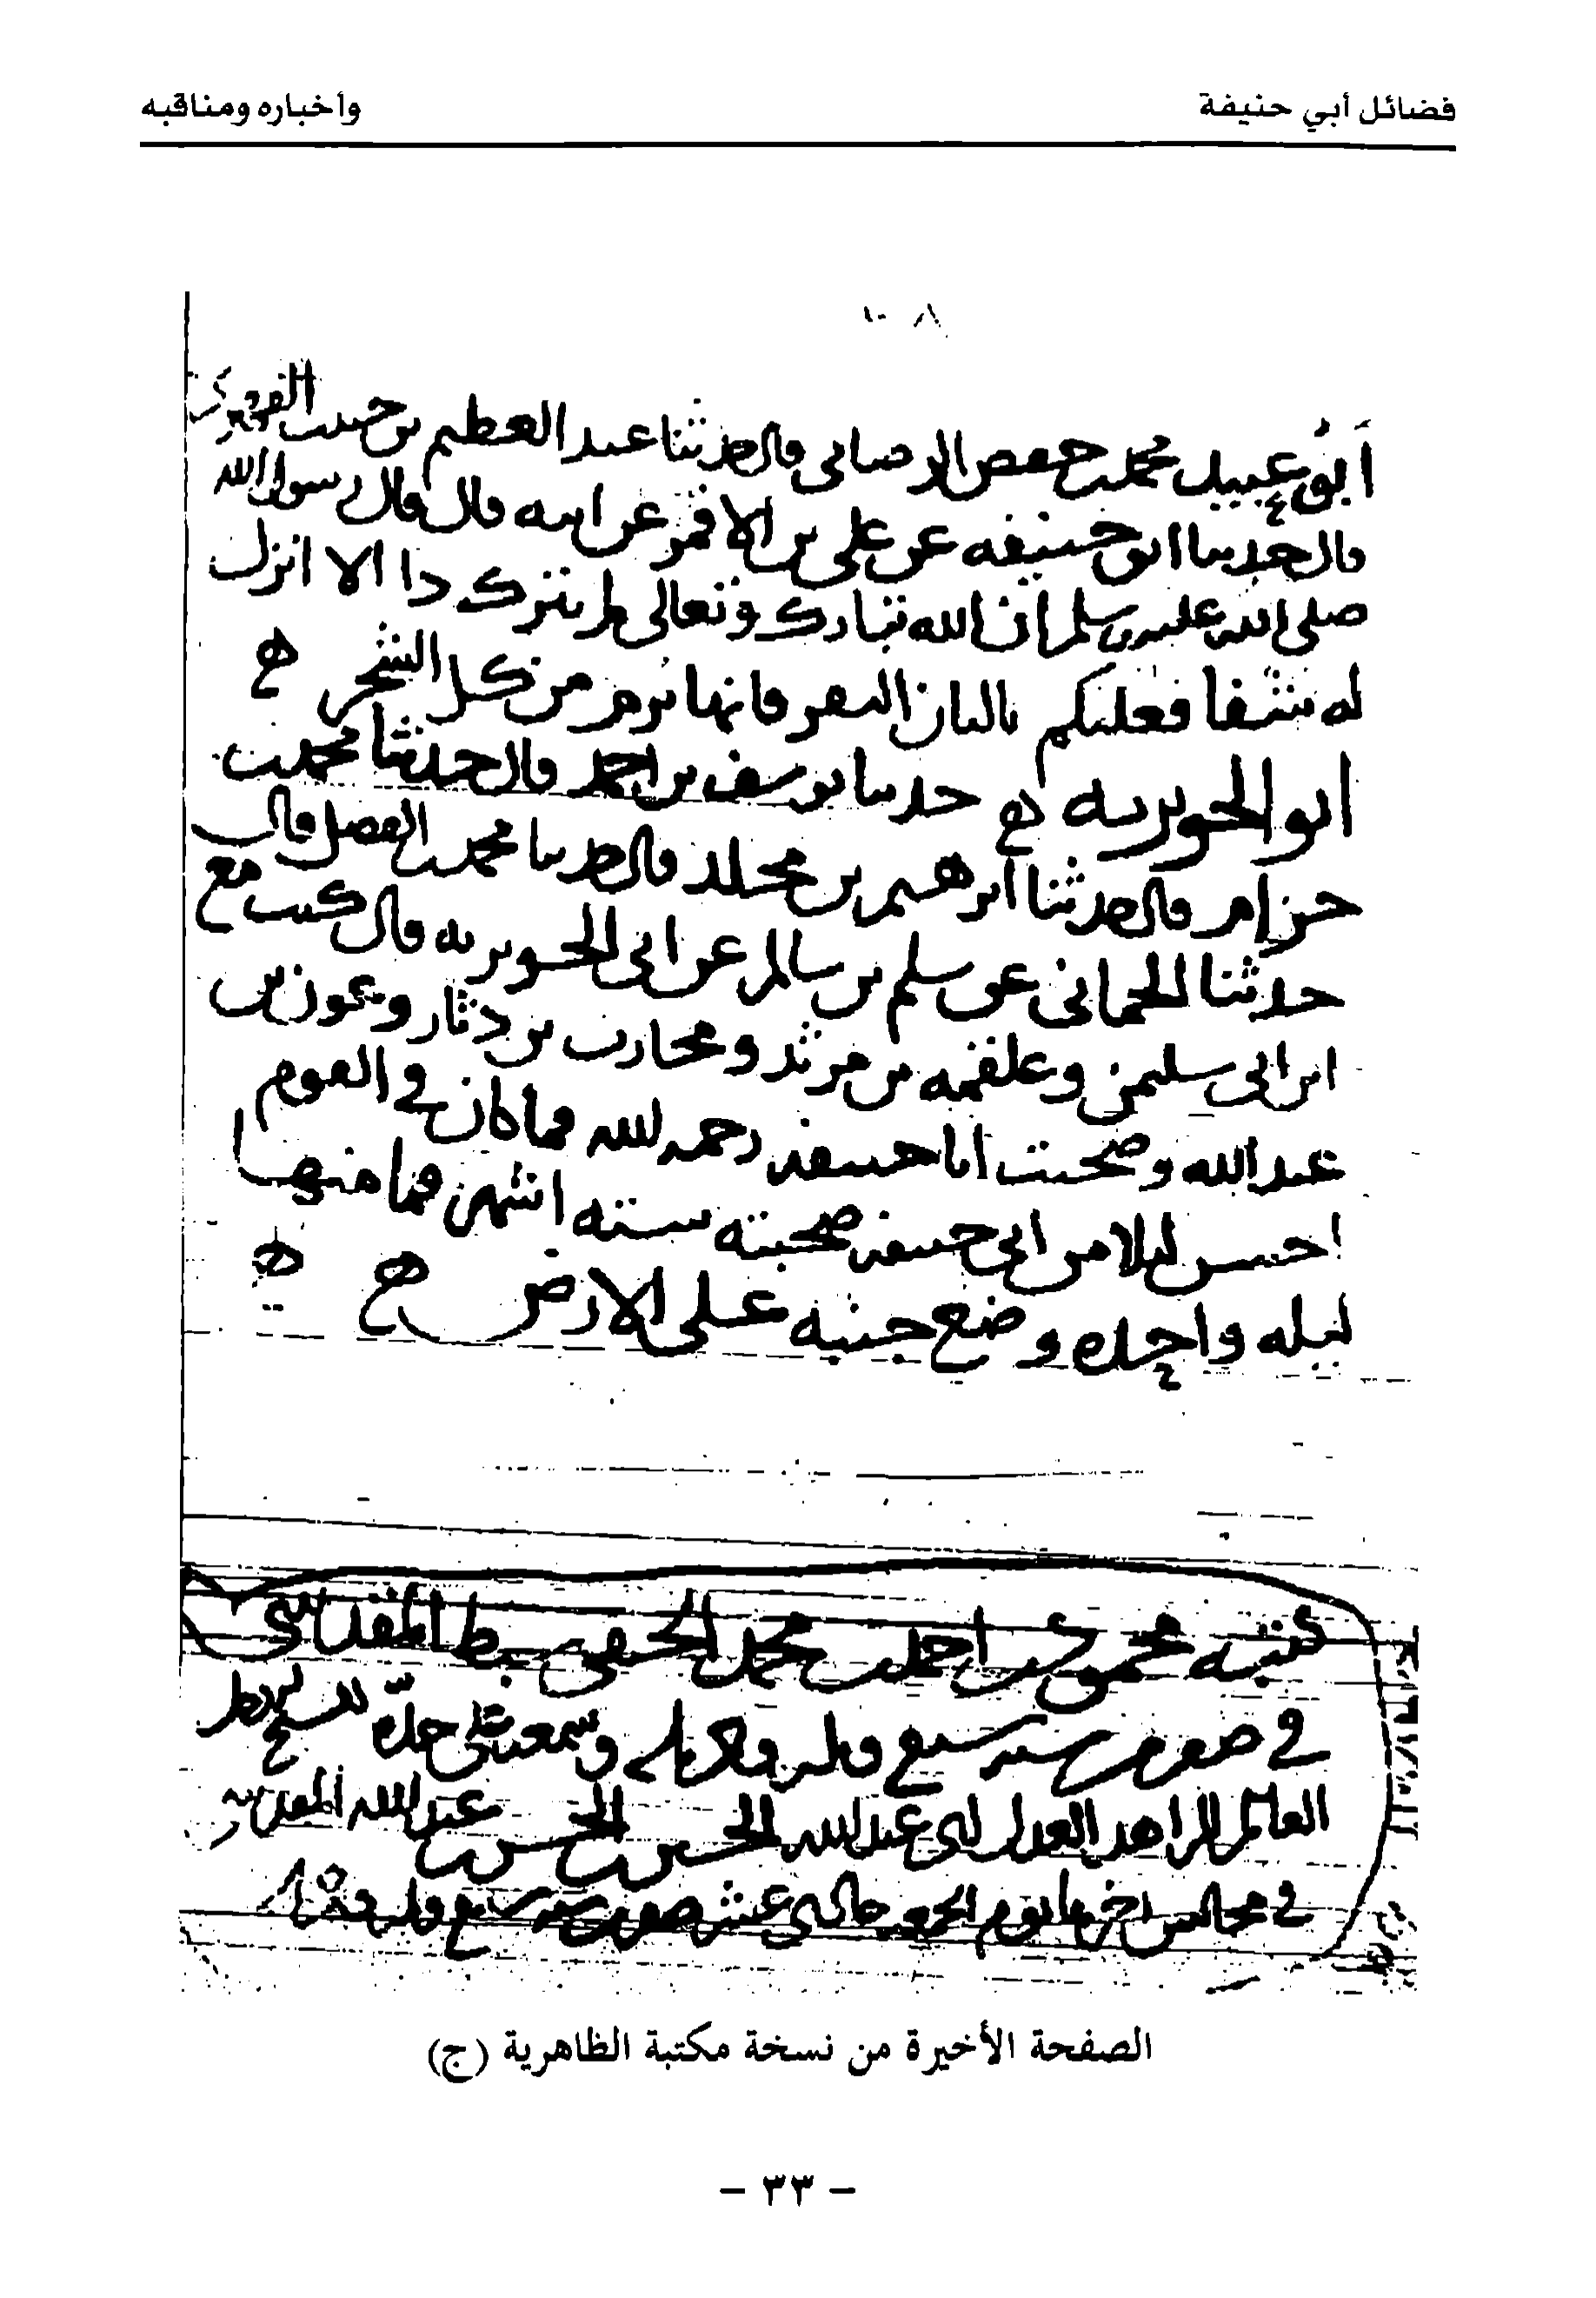 فضائل أبي حنيفة وأخباره ومناقبه
١٠٨
أبو عبيد محمد بن حفص قال حدثنا عبد العظيم بن حبيب
قال حدثنا ابو حنيفه عن علي بن الاقمر عن ابيه قال قال رسول الله
صلى الله عليه وسلم ان الله تبارك وتعالى لم يترك دا الا انزل
له شفا فعليكم بالبان البقر فانها ترم من كل الشجر ه
ابو الحويريه ه حدثنا يوسف بن احمد قال حدثنا محمد بن
حزام قال حدثنا ابرهيم بن مخلد قال حدثنا محمد بن الفضل قال
حدثنا الحماني عن سلم بن سالم عن ابي الحويريه قال كنت مع
ابن ابي سليمن وعلقمه بن مرثد ومحارب بن دثار وعون بن
عبد الله وصحبت ابا حنيفه رحمه الله فما كان في القوم
احسن ليلا من ابي حنيفه صحبته سته اشهر فما منها
ليله واحده وضع جنبه على الارض ه ه
كتبه محمود بن احمد بن محمد الحنفي سبط المقدسي
في صفر سنه سبع
العالم الزاهد العدل ابي عبد الله الحسين بن الحسن بن عبد الله المقدسي
في مجالس اخرها يوم الجمعه عشر صفر سنه سبع
الصفحة الأخيرة من نسخة مكتبة الظاهرية (ج)
- ٣٣ -